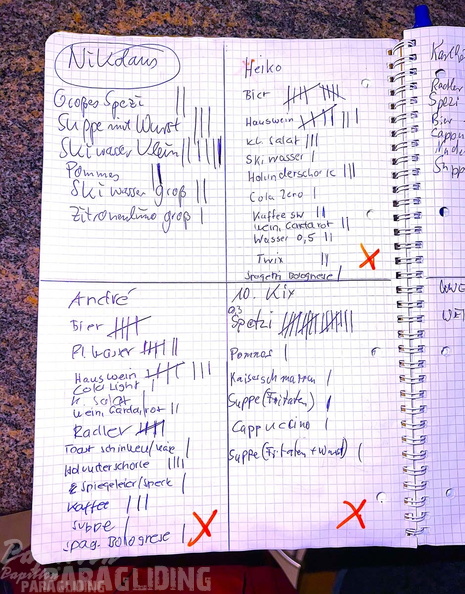 Nikolaus
Großes Spezi ||
Suppe mit Wurst |||
Skiwasser Klein
Pommes |
Skiwasser groß ||
Zitronenlimo groß |
Heiko
Bier
Hauswein
Kl. Salat |||
Skiwasser |
Holunderschorle |||
Cola Zero |
Kaffee sw ||
wein Gardarot ||
Wasser 0,5 ||
Twix ||
Spagetti Bolognese |
X
André
Bier
Pl. Wasser
Hauswein
Cola light |
K. Salat |
wein Gardarot ||
Radler
Toast schinken/käse |
Holunderschorle ||||
2 Spiegeleier/speck |
Kaffee |||
Suppe |
Spag. Bolognese |
X
10. Kix
0,3
Spetzi
Pommes |
Kaiserschmarren |
Suppe (Fritaten) |
Cappuccino |
Suppe (Fritaten + Wurst) |
X
Radler
Spezi
Bier
Supp
PARAGLIDING
Papillon
PARAGLIDING